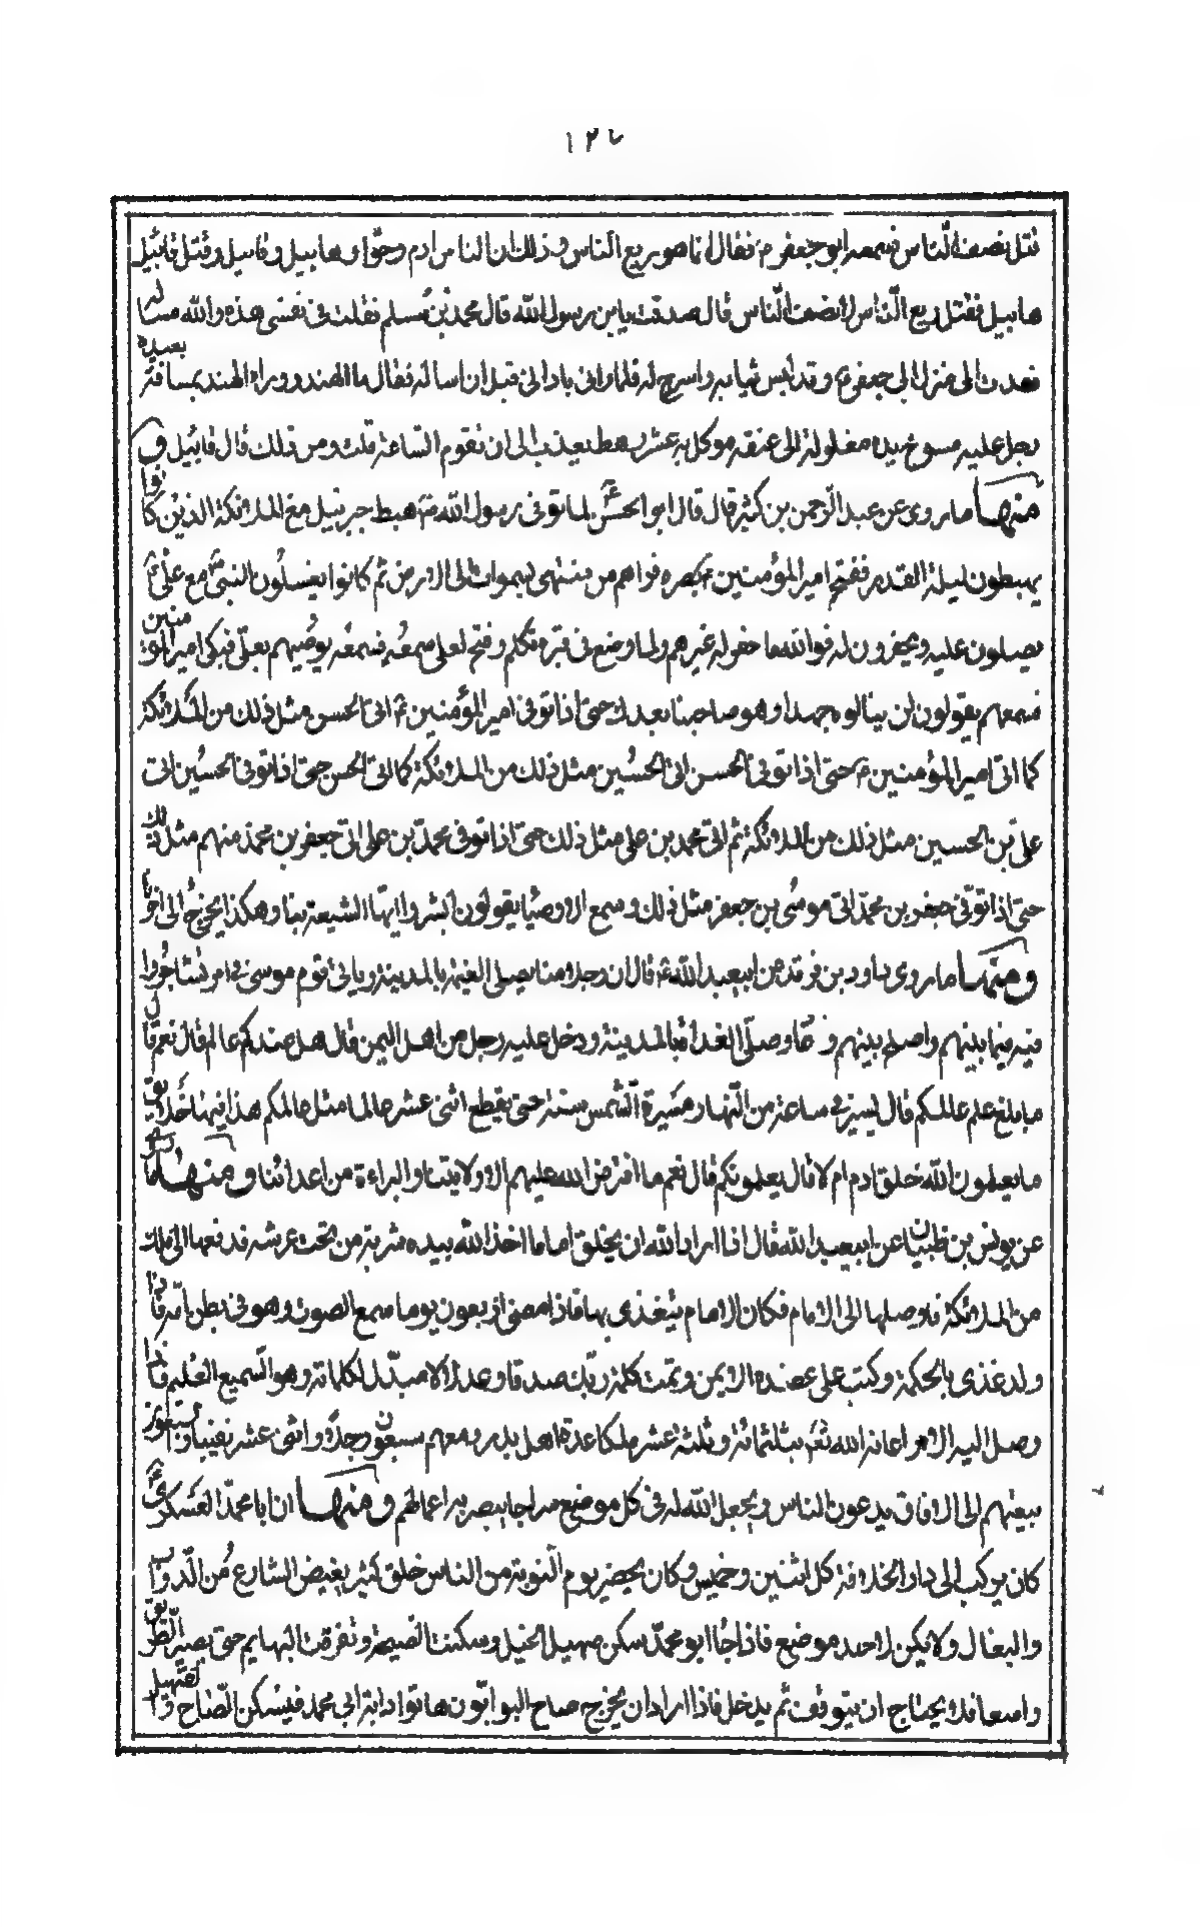 ١٣٤
قتل نصف الناس فسمعه ابو جعفر م فقال انما هو ربع الناس وذلك ان الناس ادم وحوا وهابيل وقابيل وقتل قابيل
هابيل فقتل ربع الناس لا نصف الناس قال صدقت يا بن رسول الله قال محمد بن مسلم فقلت في نفسي هذه والله مسالة
فغدت الى منزل ابي جعفر م وقد لبس ثيابه واسرج له فلما راني باداني قبل ان اساله فقال ما الهند ووراء الهند بمسافة بعيدة
رجل عليه مسوح يده مغلولة الى عنقه موكل به عشر رهط يعذب الى ان تقوم الساعة قلت ومن ذلك قال قابيل و
منها ما روى عن عبد الرحمن بن كثير قال قال ابو الحسن لما توفى رسول الله ص هبط جبرئيل مع الملائكة الذين كانوا
يهبطون ليلة القدر ففتح امير المؤمنين ع بصره فراهم من منتهى السموات الى الارض ثم كانوا يغسلون النبي ص مع علي ع
يصلون عليه ويحفرون له فوالله ما حفر له غيرهم ولما وضع في قبره فتكلم وفتح لعلي سمعه فسمعه يوصيهم بعلي فبكى امير المؤمنين
فسمعهم يقولون لن ينالوه جهدا وهو صاحبنا بعدك حتى اذا توفى امير المؤمنين ع اتى الحسن مثل ذلك من الملائكة
كما اتى امير المؤمنين ع حتى اذا توفى الحسن اتى الحسين مثل ذلك من الملائكة كما اتى الحسن حتى اذا توفى الحسين اتى
علي بن الحسين مثل ذلك من الملائكة ثم اتى محمد بن علي مثل ذلك حتى اذا توفى محمد بن علي اتى جعفر بن محمد منهم مثل ذلك
حتى اذا توفى جعفر بن محمد اتى موسى بن جعفر مثل ذلك وسمع الاوصيا يقولون ابشروا ايها الشيعة بنا وهكذا يخرج الى اخرنا
ومنها ما روى داود بن فرقد عن ابيعبد الله ع قال ان رجلا منا يصلى العتمة بالمدينة وياتى قوم موسى في امر تشاجروا
فيه فيما بينهم واصلح بينهم و وصلى الغداة بالمدينة ودخل عليه رجل من اهل اليمن قال هل عندكم عالم قال نعم قال
ما بلغ علم عالمكم قال ليسير في ساعة من النهار مسيرة الشمس سنة حتى يقطع اثنى عشر عالما مثل عالمكم هذا فيها خلايق
ما يعلمون الله خلق ادم ام لا قال يعلمونكم قال نعم ما افترض الله عليهم الا ولايتنا والبراءة من اعدائنا ومنها ما
عن يونس بن ظبيان عن ابيعبد الله قال اذا اراد الله ان يخلق اماما اخذ الله بيده شربة من تحت عرشه فدفعها الى ملك
من الملائكة فاوصلها الى الامام فكان الامام يتغذى بها فاذا مضى اربعون يوما سمع الصوت وهو في بطن امه فاذا
ولد غذى بالحكمة وكتب على عضده الايمن وتمت كلمة ربك صدقا وعدلا لا مبدل لكلماته وهو السميع العليم فاذا
وصل اليه الامر اعانه الله تعم بثلثمائة وثلثة عشر ملكا عدة اهل بدر ومعهم سبعون رجلا واثنى عشر نقيبا
يبعثهم الى الافاق يدعون الناس ويجعل الله له في كل موضع سراجا يبصر به اعمالهم ومنها ان ابا محمد العسكرى
كان يركب الى دار الخلافة كل اثنين وخميس وكان يحضر يوم النوبة من الناس خلق كثير يغيض الشارع من الدواب
والبغال ولا يكن لاحد موضع فاذا جا ابو محمد سكن صهيل الخيل وسكنت الضيحة وتفرقت البهايم حتى يصير الطريق
واسعا فلا يحتاج ان يتوقف ثم يدخل فاذا اراد ان يخرج صاح البوابون هاتوا دابة ابي محمد فيسكن الصياح